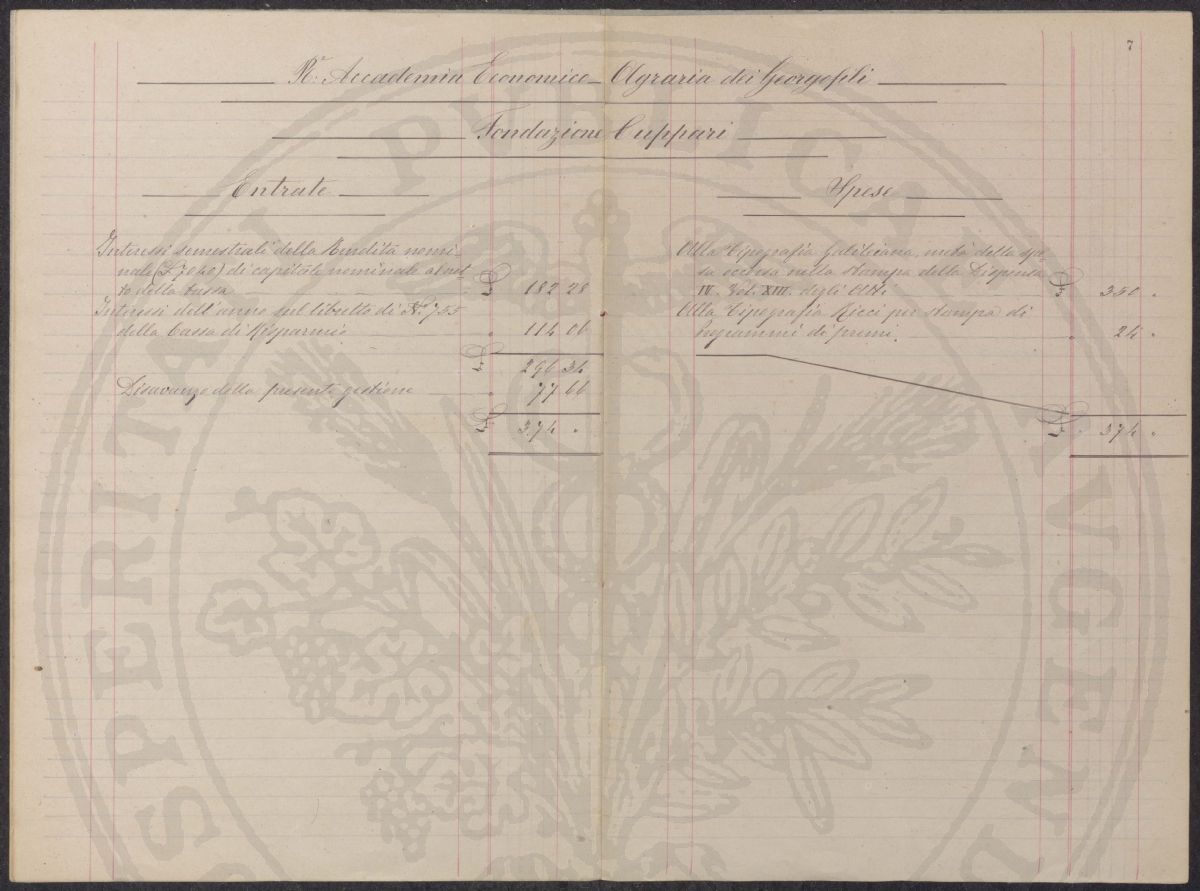 7
Rª Accademia Economico-Agraria dei Georgofili
Fondazione Cuppari
Entrate
Interessi semestrali della Rendita nomi-
nale (£ 7040) di capitale nominale al net-
to della tassa £ 182 28
Interessi dell'anno sul libretto di N.º 755
della Cassa di Risparmi. " 114 06
£ 296 34
Disavanzo della presente gestione " 77 66
£ 374 "
Spese
Alla Tipografia Galileiana, metà della spe-
sa occorsa nella stampa della Dispensa
IV. Vol. XIII. degli Atti £ 350 "
Alla Tipografia Ricci per stampa di
Programmi di premi. " 24 "
£ 374 "
PROSPERITATI PUBLICAE AVGENDAE